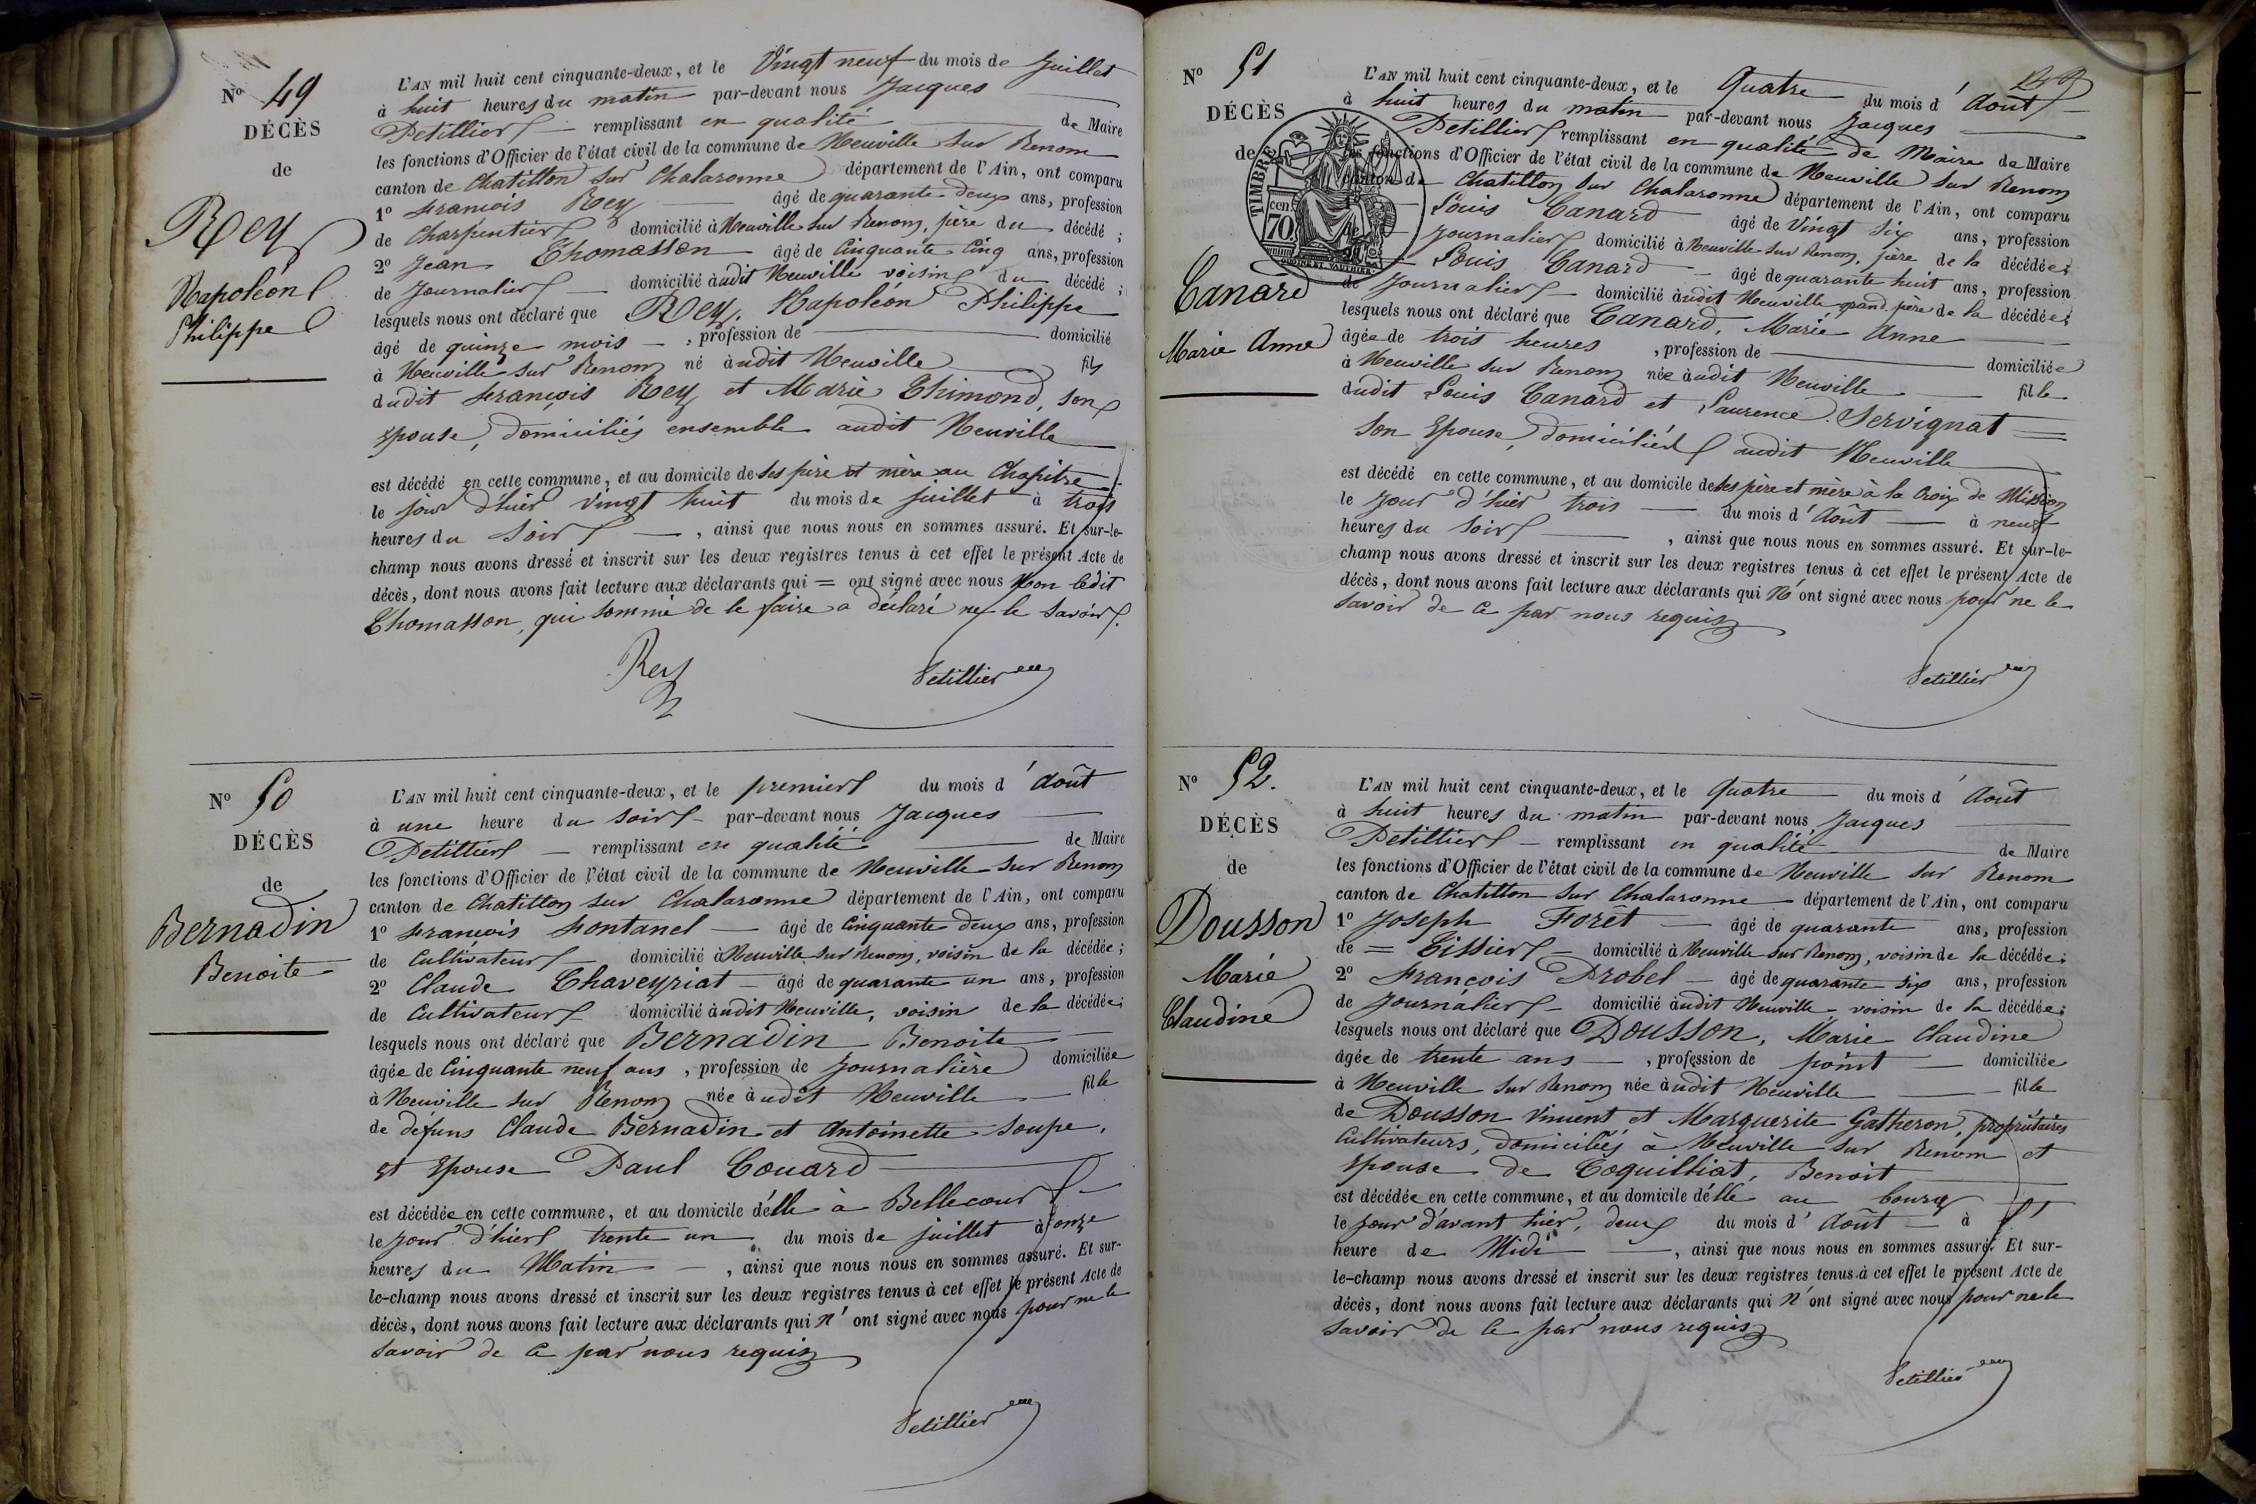 N° 49
DÉCÈS
de
Rey
Napoléon
Philippe
L'AN mil huit cent cinquante-deux, et le Vingt neuf du mois de Juillet
à huit heures du matin par-devant nous Jacques
Petillier remplissant en qualité de Maire
les fonctions d'Officier de l'état civil de la commune de Neuville sur Renom
canton de Chatillon sur Chalaronne département de l'Ain, ont comparu
1° François Rey âgé de quarante deux ans, profession
de Charpentier domicilié à Neuville sur Renom, père du décédé ;
2° Jean Thomasson âgé de Cinquante Cinq ans, profession
de Journalier domicilié àudit Neuville voisin du décédé ;
lesquels nous ont déclaré que Rey, Napoléon Philippe
âgé de quinze mois , profession de domicilié
à Neuville sur Renom né àudit Neuville fils
dudit François Rey et Marie Thimond, son
épouse, domiciliés ensemble audit Neuville
est décédé en cette commune, et au domicile de ses père et mère au Chapitre
le jour d'hier vingt huit du mois de juillet à trois
heures du soir , ainsi que nous nous en sommes assuré. Et sur-le-
champ nous avons dressé et inscrit sur les deux registres tenus à cet effet le présent Acte de
décès, dont nous avons fait lecture aux déclarants qui = ont signé avec nous Non ledit
Thomasson, qui sommé de le faire a déclaré ne le savoir.
Rey
Petillier
N° 50
DÉCÈS
de
Bernadin
Benoite
L'AN mil huit cent cinquante-deux, et le premier du mois d'Août
à une heure du soir par-devant nous Jacques
Petillier remplissant en qualité de Maire
les fonctions d'Officier de l'état civil de la commune de Neuville sur Renom
canton de Chatillon sur Chalaronne département de l'Ain, ont comparu
1° François Fontanel âgé de Cinquante deux ans, profession
de Cultivateur domicilié à Neuville sur Renom, voisin de la décédée ;
2° Claude Chaveyriat âgé de quarante un ans, profession
de Cultivateur domicilié àudit Neuville, voisin de la décédée ;
lesquels nous ont déclaré que Bernadin Benoite
âgée de Cinquante neuf ans , profession de Journalière domiciliée
à Neuville sur Renom née àudit Neuville fille
de défuns Claude Bernadin et Antoinette Soupe,
et Epouse Paul Couard
est décédée en cette commune, et au domicile d'élle à Bellecour
le jour d'hier trente un du mois de juillet à onze
heures du Matin , ainsi que nous nous en sommes assuré. Et sur-
le-champ nous avons dressé et inscrit sur les deux registres tenus à cet effet le présent Acte de
décès, dont nous avons fait lecture aux déclarants qui n'ont signé avec nous pour ne le
savoir de ce par nous requis
Petillier
N° 51
DÉCÈS
de
TIMBRE
cen 70
Canard
Marie Anne
L'AN mil huit cent cinquante-deux, et le Quatre du mois d'Août
à huit heures du matin par-devant nous Jacques
Petillier remplissant en qualité de Maire de Maire
les fonctions d'Officier de l'état civil de la commune de Neuville sur Renom
canton de Chatillon sur Chalaronne département de l'Ain, ont comparu
Louis Canard âgé de Vingt six ans, profession
de Journalier domicilié à Neuville sur Renom, père de la décédée ;
Louis Canard âgé de quarante huit ans, profession
de Journalier domicilié àudit Neuville grand père de la décédée ;
lesquels nous ont déclaré que Canard, Marie Anne
âgée de trois heures , profession de domiciliée
à Neuville sur Renom née àudit Neuville fille
dudit Louis Canard et Laurence Servignat
son Epouse, domiciliés audit Neuville
est décédé en cette commune, et au domicile de ses père et mère à la Croix de Mission
le jour d'hier trois du mois d'Août à neuf
heures du soir , ainsi que nous nous en sommes assuré. Et sur-le-
champ nous avons dressé et inscrit sur les deux registres tenus à cet effet le présent Acte de
décès, dont nous avons fait lecture aux déclarants qui N'ont signé avec nous pour ne le
savoir de ce par nous requis
Petillier
N° 52.
DÉCÈS
de
Dousson
Marie
Claudine
L'AN mil huit cent cinquante-deux, et le Quatre du mois d'Août
à huit heures du matin par-devant nous Jacques
Petillier remplissant en qualité de Maire
les fonctions d'Officier de l'état civil de la commune de Neuville sur Renom
canton de Chatillon sur Chalaronne département de l'Ain, ont comparu
1° Joseph Foret âgé de quarante ans, profession
de = Tissier domicilié à Neuville sur Renom, voisin de la décédée ;
2° François Probel âgé de quarante six ans, profession
de Journalier domicilié àudit Neuville voisin de la décédée ;
lesquels nous ont déclaré que Dousson, Marie Claudine
âgée de trente ans , profession de point domiciliée
à Neuville sur Renom née àudit Neuville fille
de Dousson Vincent et Marguerite Gatheron, propriétaires
Cultivateurs, domiciliés à Neuville sur Renom et
épouse de Coquilliat, Benoit
est décédée en cette commune, et au domicile d'élle au bourg
le jour d'avant hier, deux du mois d'Août à
heure de Midi , ainsi que nous nous en sommes assuré. Et sur-
le-champ nous avons dressé et inscrit sur les deux registres tenus à cet effet le présent Acte de
décès, dont nous avons fait lecture aux déclarants qui n'ont signé avec nous pour ne le
savoir de ce par nous requis
Petillier